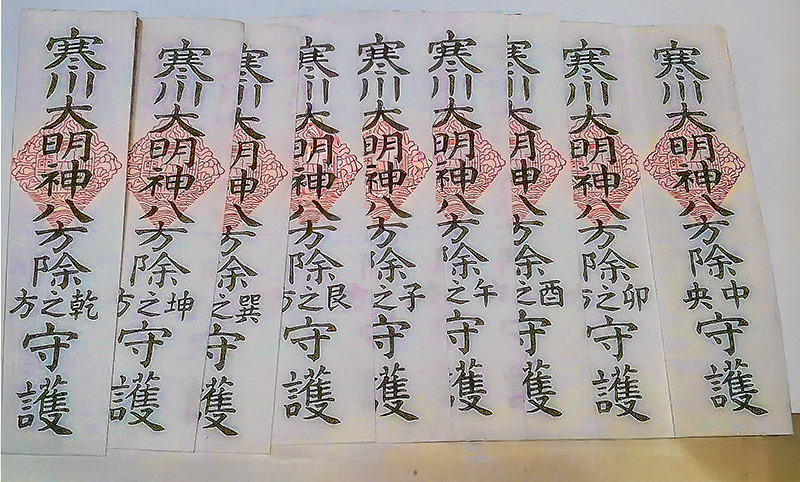 寒川大明神八方除中央守護
寒川大明神八方除卯之方守護
寒川大明神八方除酉之守護
寒川大明神八方除午之守護
寒川大明神八方除子之守護
寒川大明神八方除艮之方守護
寒川大明神八方除巽之守護
寒川大明神八方除坤之方守護
寒川大明神八方除乾之方守護